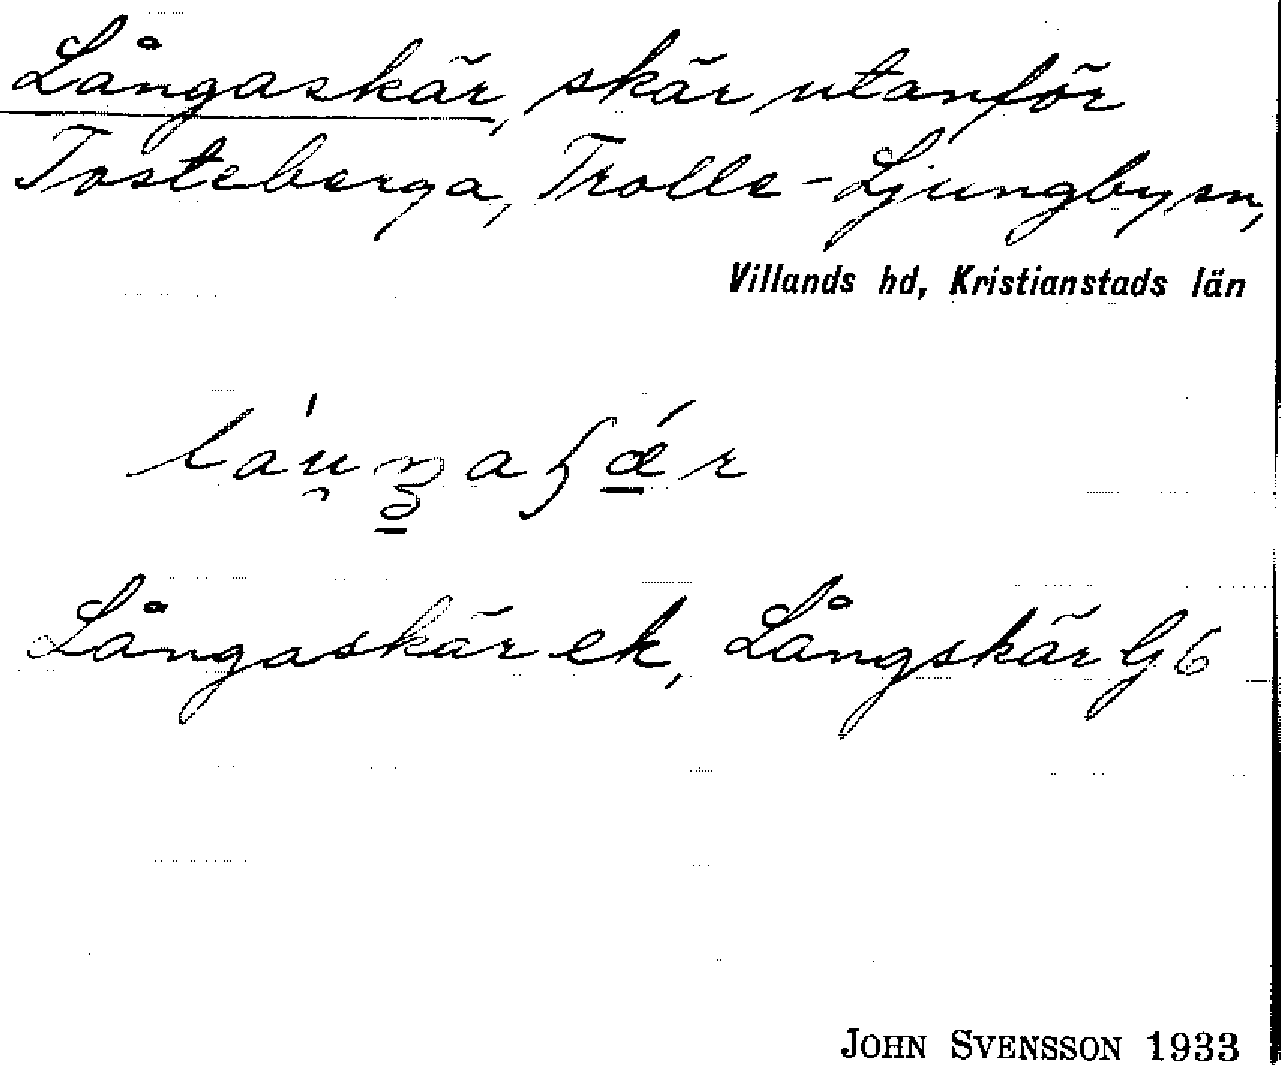 Långaskär, skär utanför
Tosteberga, Trolle-Ljungby sn,
Villands hd, Kristianstads län
Långaskär ek, Långskär G6
JOHN SVENSSON 1933